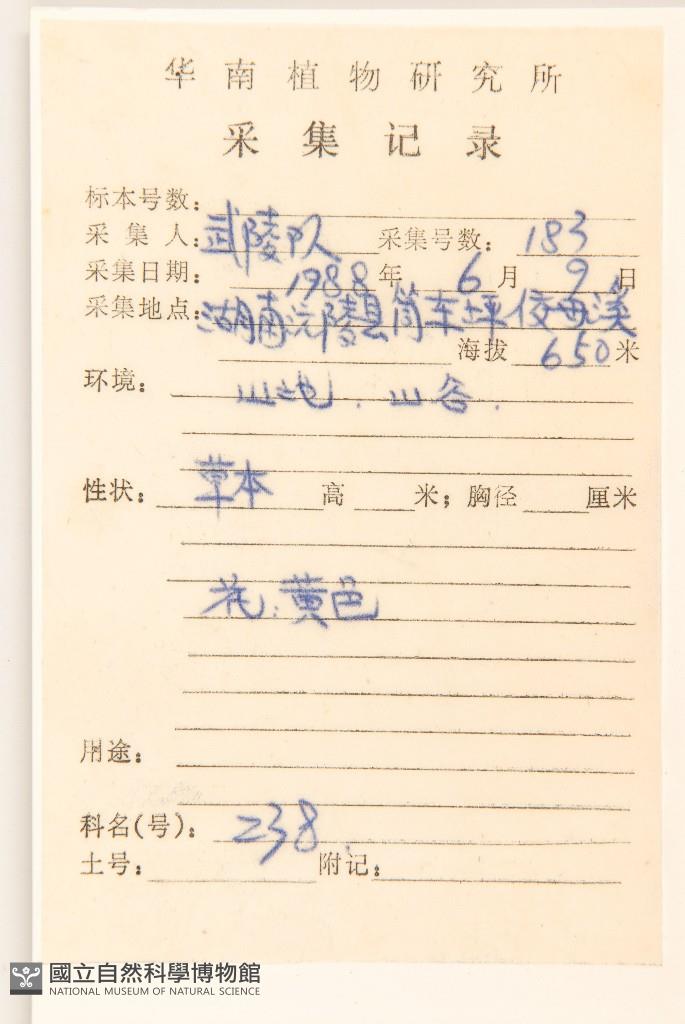 华南植物研究所
采集记录
标本号数：
采集人：武陵队 采集号数：183
采集日期：1988年6月9日
采集地点：湖南沅陵县筒车坪
海拔650米
环境：山地，山谷．
性状：草本 高 米；胸径 厘米
花：黄色
用途：
科名(号)：238．
土号： 附记：
國立自然科學博物館
NATIONAL MUSEUM OF NATURAL SCIENCE